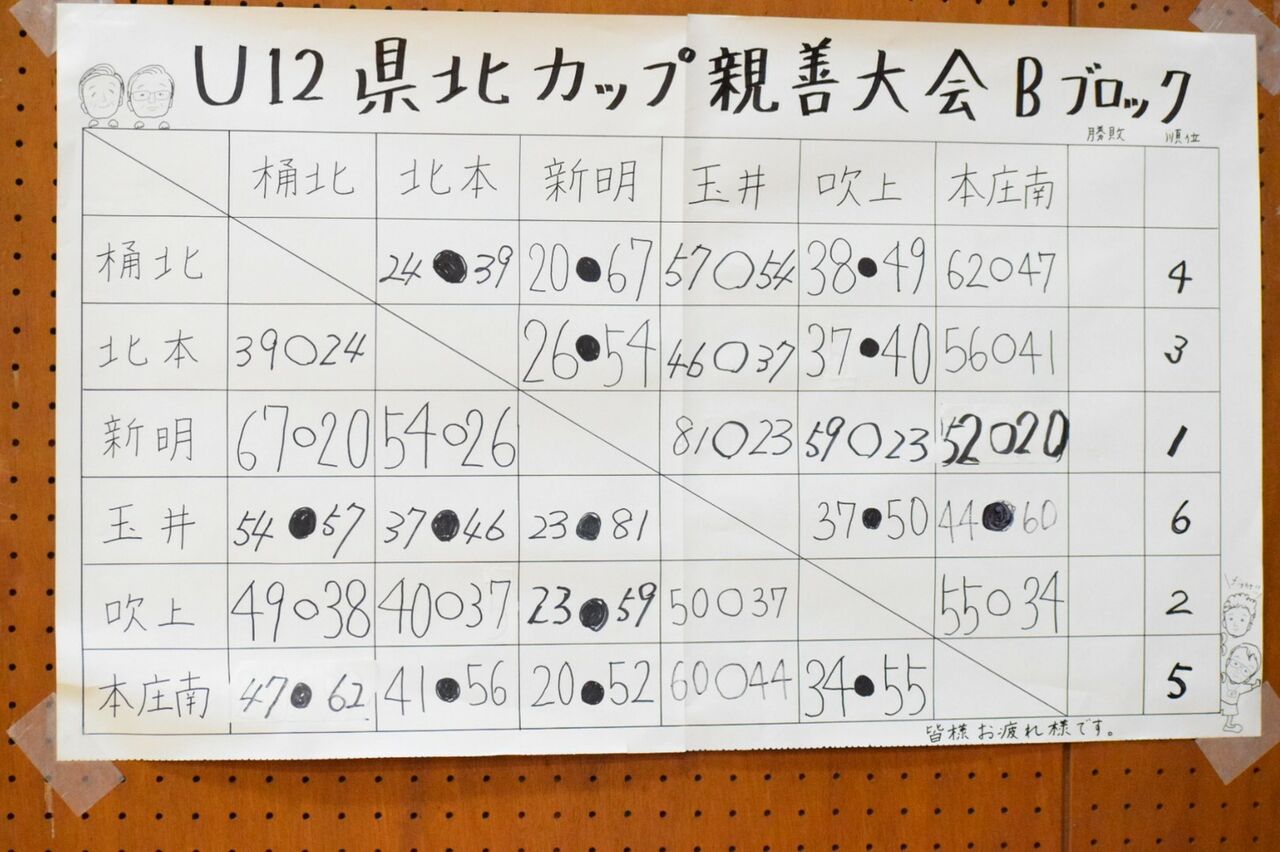 U12 県北カップ親善大会 Bブロック
勝敗 順位
桶北 北本 新明 玉井 吹上 本庄南
桶北 24●39 20●67 57○54 38●49 62○47 4
北本 39○24 26●54 46○37 37●40 56○41 3
新明 67○20 54○26 81○23 59○23 52○20 1
玉井 54●57 37●46 23●81 37●50 44●60 6
吹上 49○38 40○37 23●59 50○37 55○34 2
本庄南 47●62 41●56 20●52 60○44 34●55 5
皆様お疲れ様です。